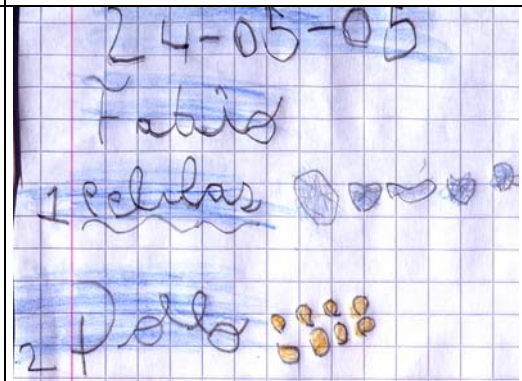 24-05-05
Fabio
1 pelulas
2 pollo